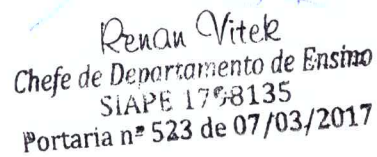 Renan Vitek
Chefe de Departamento de Ensino
SIAPE 1798135
Portaria nº 523 de 07/03/2017